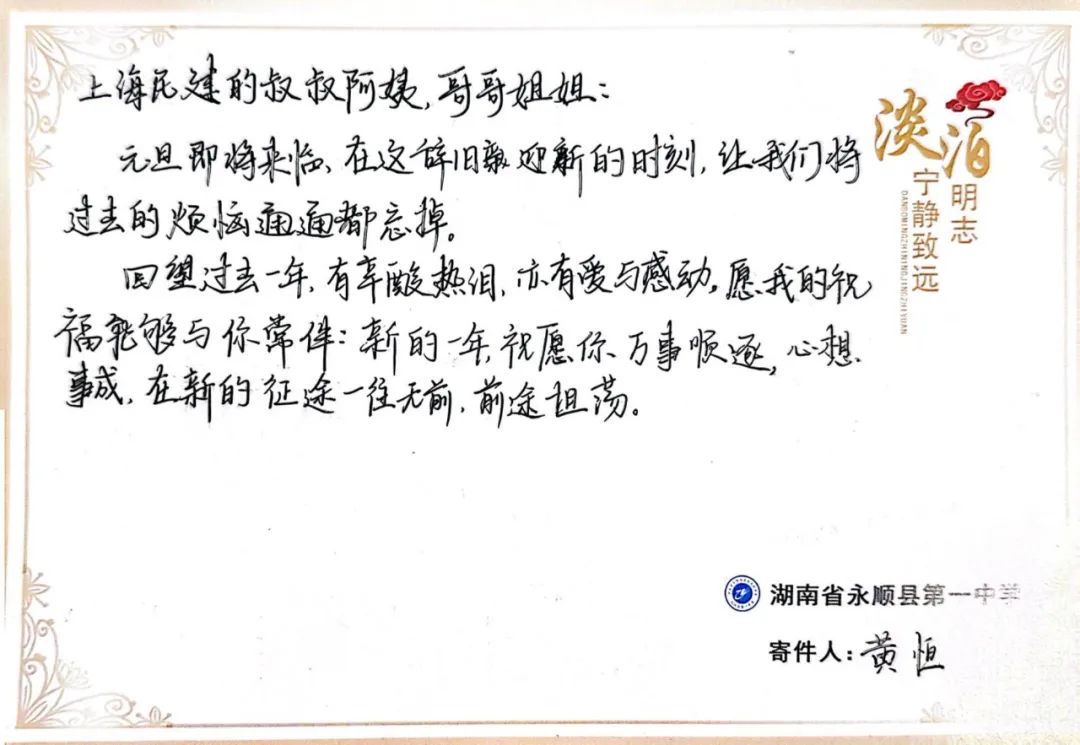 上海民建的叔叔阿姨，哥哥姐姐：
元旦即将来临、在这辞旧迎新的时刻，让我们将
过去的烦恼通通都忘掉。
回望过去一年，有辛酸热泪，亦有爱与感动。愿我的祝
福能够与你常伴：新的一年，祝愿你万事顺遂，心想
事成，在新的征途一往无前，前途坦荡。
淡泊
明志
宁静致远
DANBOMINGZHININGJINGZHIYUAN
湖南省永顺县第一中学
寄件人：黄恒